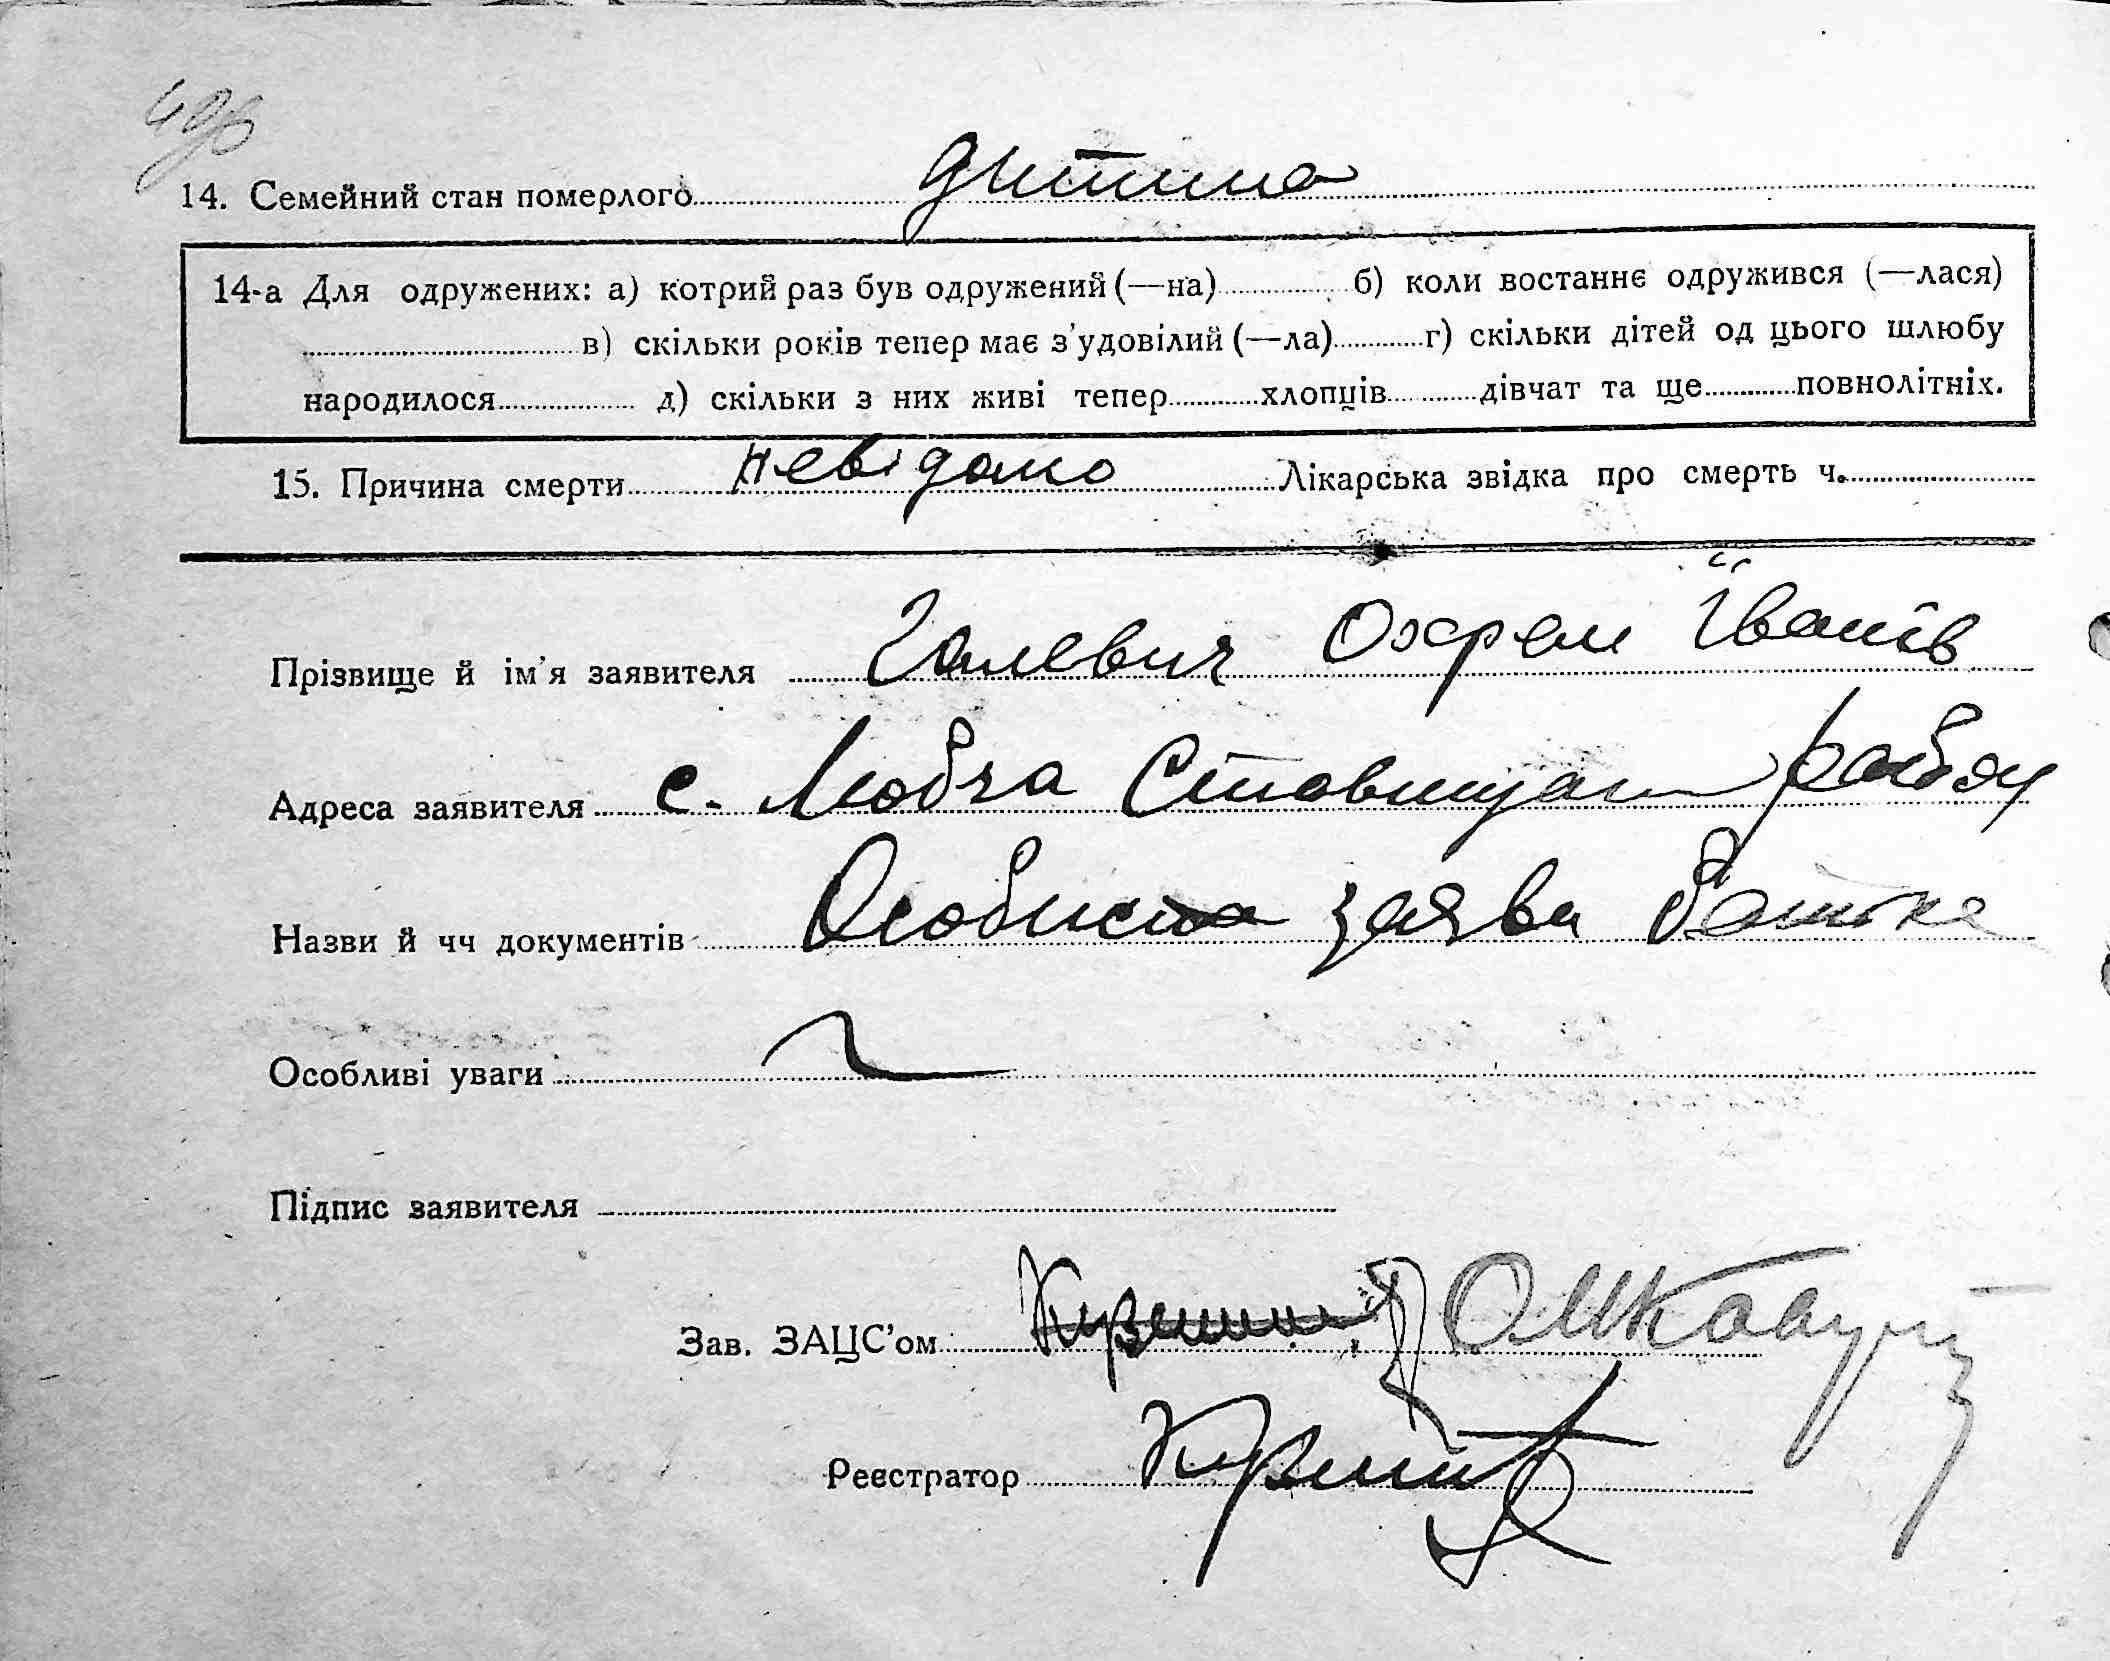 14. Семейний стан померлого дитина
14-а Для одружених: а) котрий раз був одружений (—на) б) коли востаннє одружився (—лася)
в) скільки років тепер має з'удовілий (—ла) г) скільки дітей од цього шлюбу
народилося д) скільки з них живі тепер хлопців дівчат та ще повнолітніх.
15. Причина смерти невідомо Лікарська звідка про смерть ч.
Прізвище й ім'я заявителя Галевич Охрем Іванів
Адреса заявителя с. Любча Ставищан район
Назви й чч документів Особиста заява батька
Особливі уваги
Підпис заявителя
Зав. ЗАЦС'ом
Реєстратор